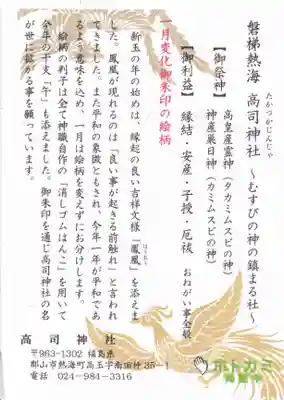 磐梯熱海 高司神社 ~むすびの神の鎮まる社~
たかつかじんじゃ
【御祭神】
高皇産霊神(タカミムスビの神)
神産巣日神(カミムスビの神)
【御利益】 縁結・安産・子授・厄祓 おねがい事全般
一月変化御朱印の絵柄
新玉の年の始めは、縁起の良い吉祥文様「鳳凰」を添えま
ほうおう
した。鳳凰が現れるのは「良い事が起きる前触れ」と言われ
てきました。また平和の象徴ともされ、今年一年が平和であ
るよう意味を込め、一月は絵柄を変えずにお分けします。
絵柄の判子は全て神職自作の「消しゴムはんこ」を用いて
今年の干支「午」も添えました。御朱印を通じ高司神社の名
が世に鎔がる事を願っています。
高司神社
〒963-1302 福島県
郡山市熱海町高玉字南梅竹35-1
電話 024-984-3316
ホトカミ